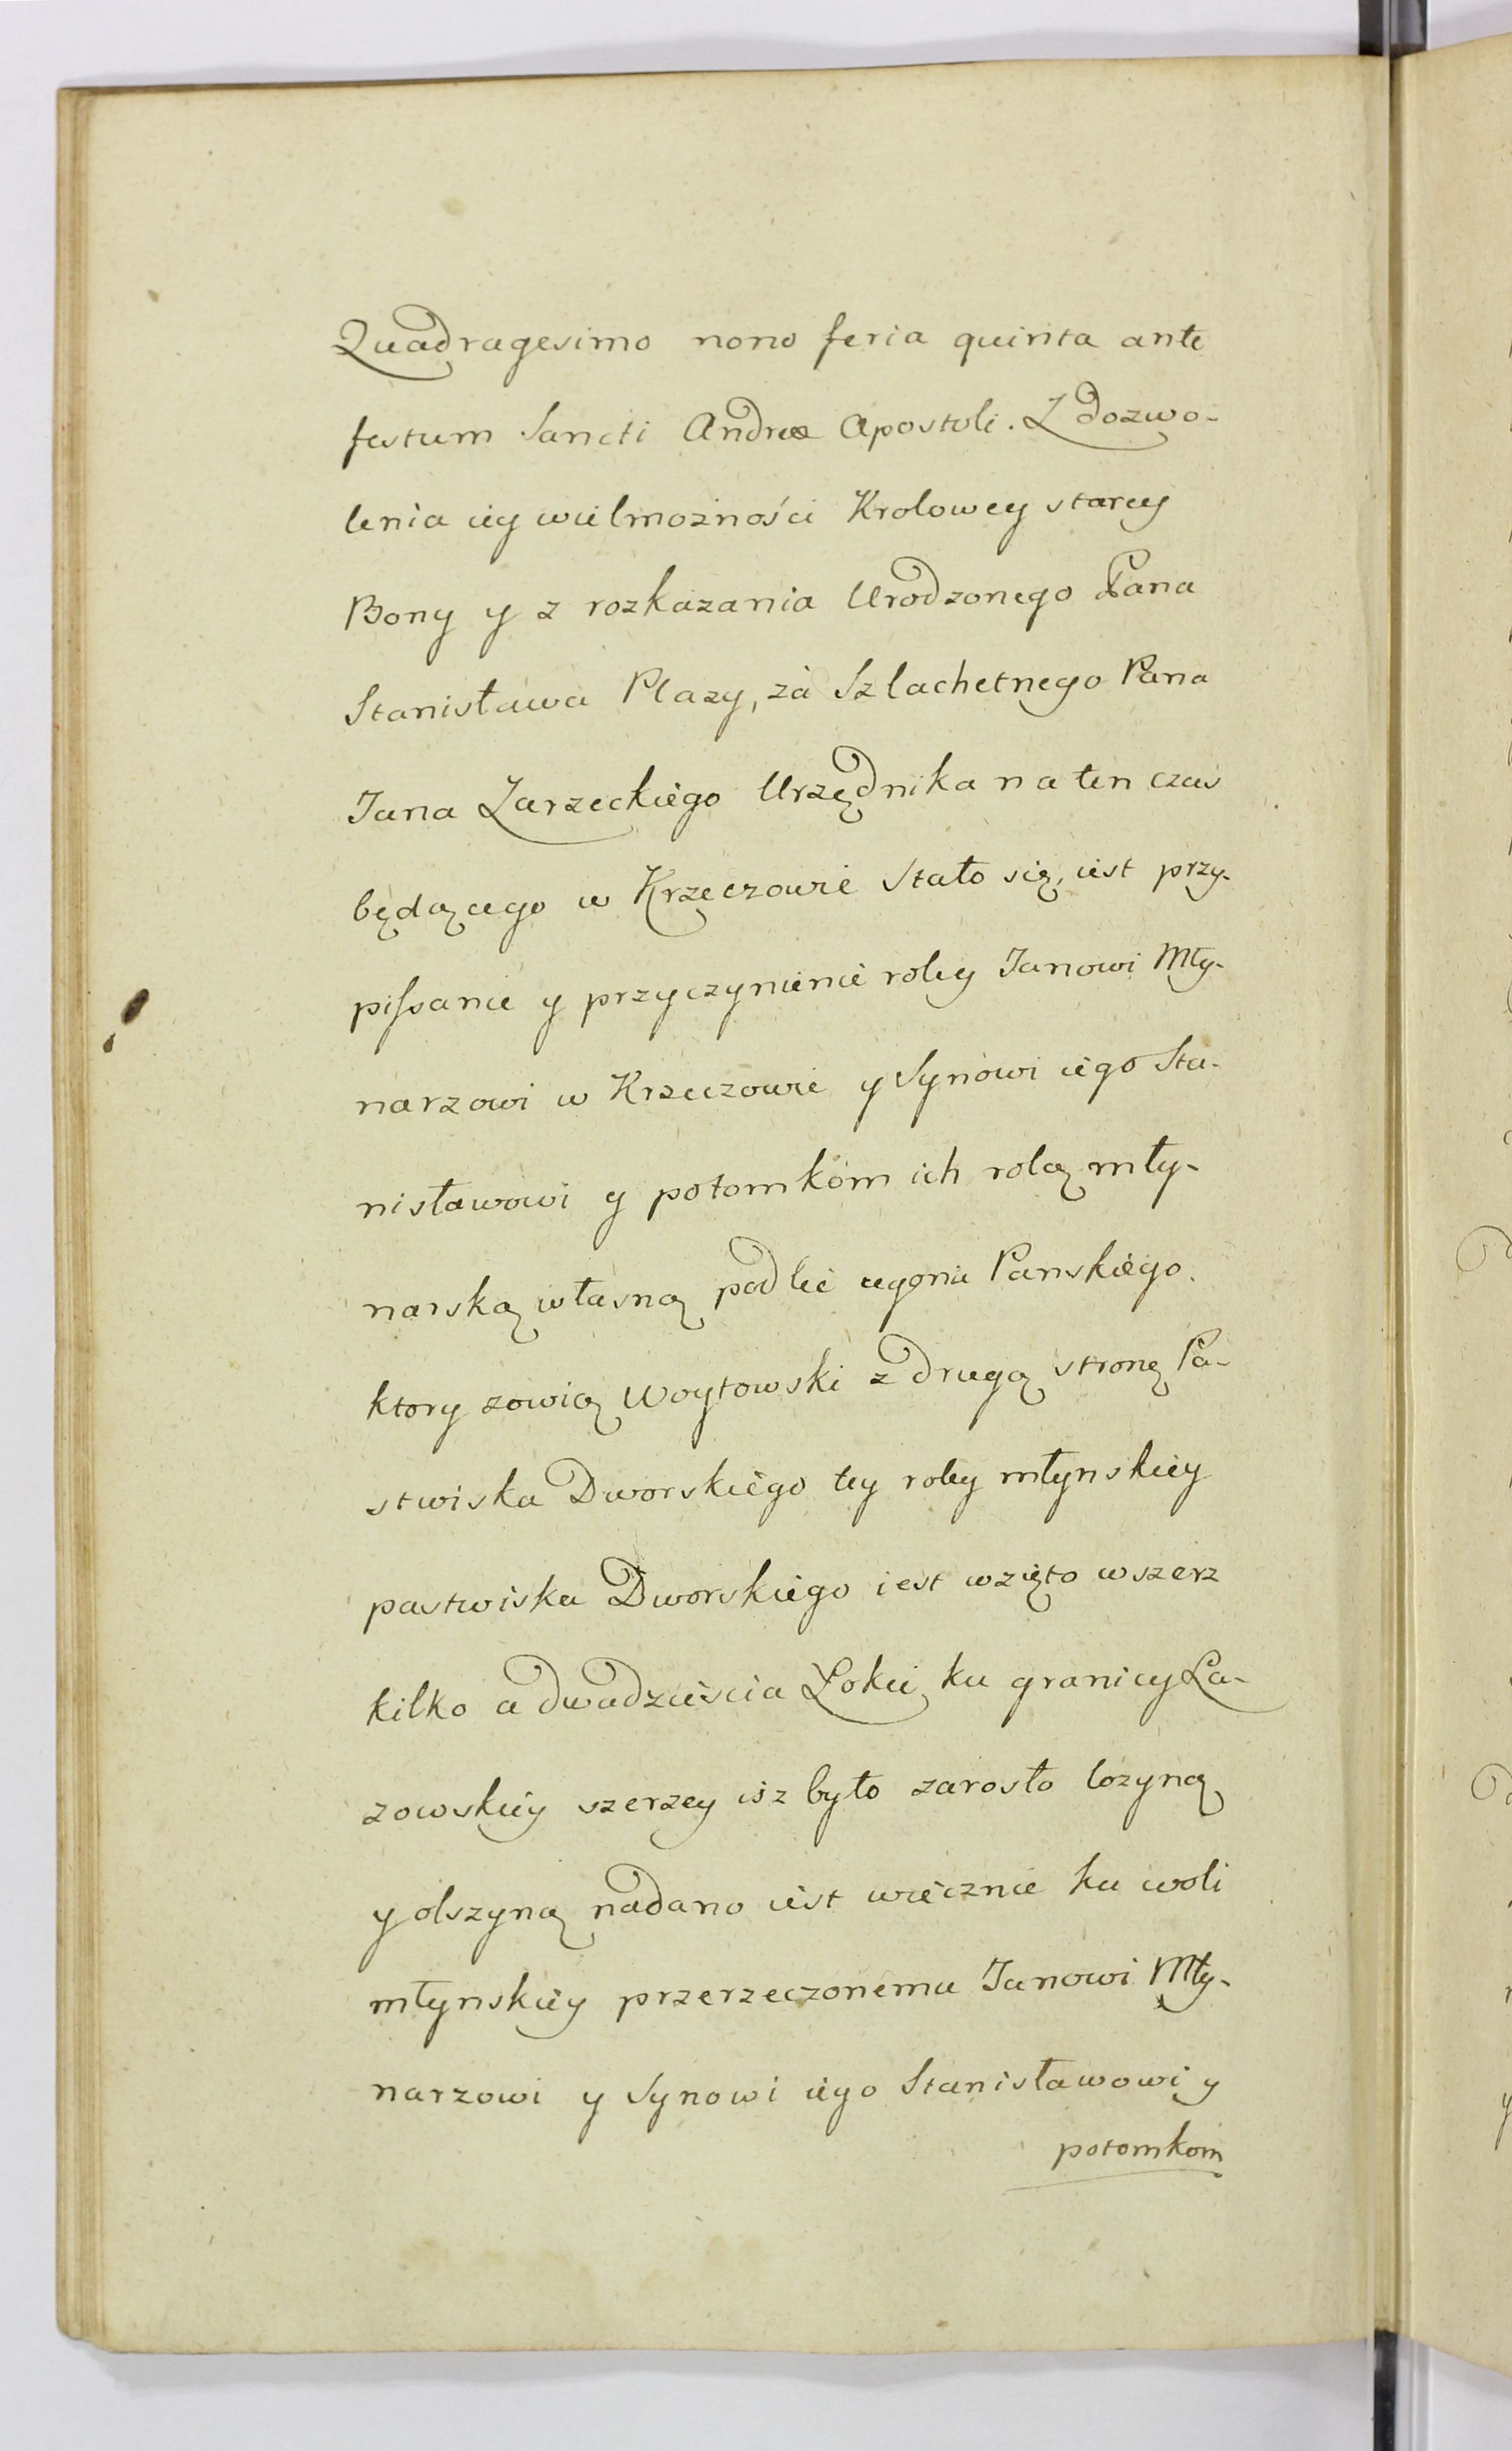 Quadragesimo nono feria quinta ante
festum Sancti Andreæ Apostoli. Z dozwo-
lenia iey wielmożności Krolowey starey
Bony y z rozkazania Urodzonego Pana
Stanisława Plazy, za Szlachetnego Pana
Jana Zarzeckiego Urzędnika na ten czas
będącego w Krzęczowie Stało się, iest przy-
pissanie y przyczynienie roley Janowi Mły-
narzowi w Krzeczowie y Synowi iego Sta-
nisławowi y potomkom ich rolą mły-
narską własną podle ugoru Panskiego.
ktory zowią Woytowski z drugą stronę Pa-
stwiska Dworskiego tey roley młynskiey
pastwiska Dworskiego iest wzięto wszerz
kilko a dwadzieścia Łokci, ku granicy Ła-
zowskiey szerzey isz było zarosło łozyną
y olszyną nadano iest wiecznie ku woli
młynskiey przerzeczonemu Janowi Mły-
narzowi y Synowi iego Stanisławowi y
potomkom